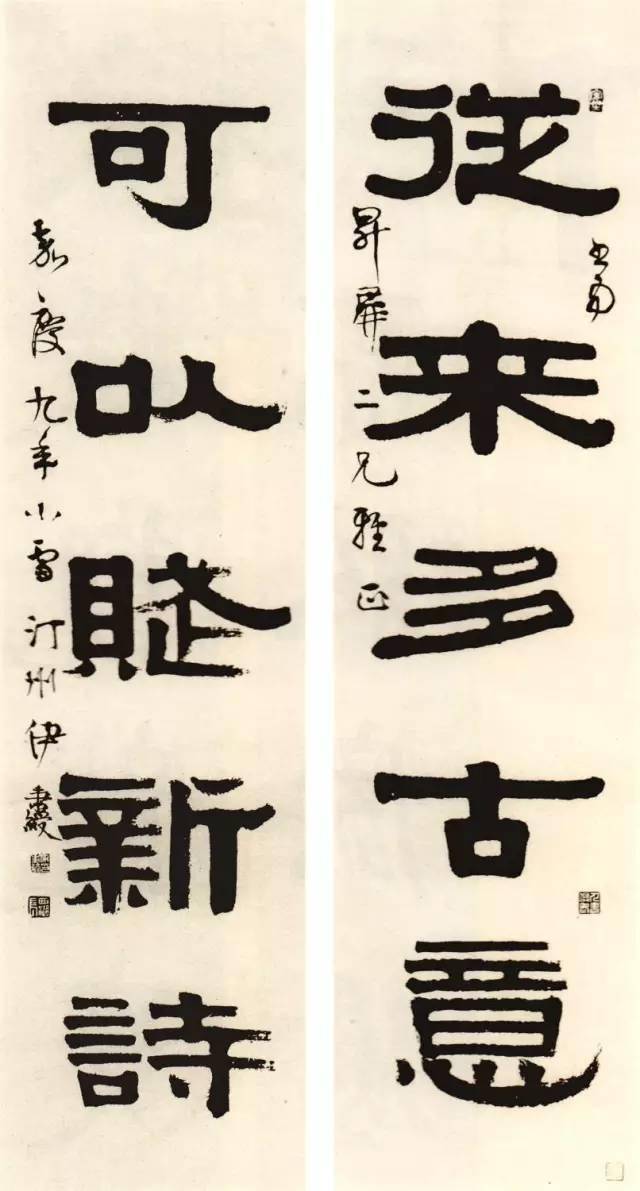 從來多古意
可以賦新詩
書為
昇屏二兄雅正
嘉慶九年小雪汀州伊秉綬